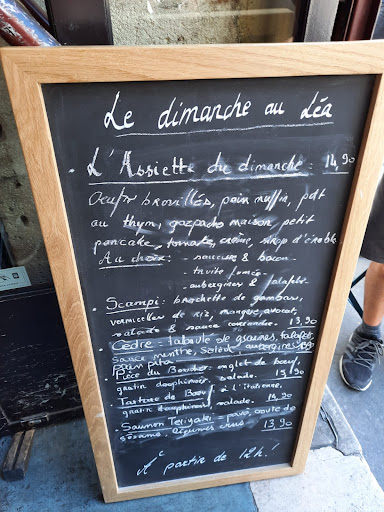 Le dimanche au Léa
• L'Assiette du dimanche : 14,90
Oeufs brouillés, pain muffin, pdt
au thym, gazpacho maison, petit
pancake, tomate, crème, sirop d'érable
Au choix: - saucisse & bacon
- truite fumée
- aubergines & falafels
• Scampi: brochette de gambas,
vermicelles de riz, mangue, avocat,
salade & sauce coriandre. 13,90
• Cèdre: taboulé de graines, falafel,
sauce menthe, salade, aubergines,
pain pita
• Pièce du Boucher: onglet de bœuf,
gratin dauphinois, salade. 13,90
• Tartare de Bœuf à l'italienne,
gratin dauphinois, salade. 14,20
• Saumon Teriyaki: pavé, croûte de
sésame, légumes crus 13,90
À partir de 12h!